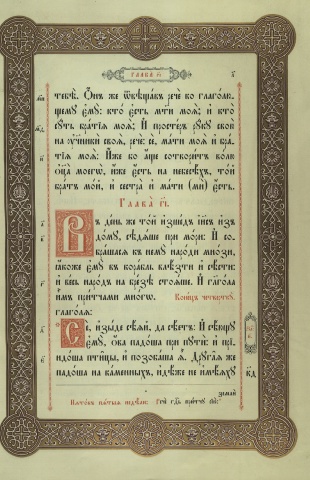 ГЛАВА
тебѣ. Онъ же ѿвѣщавъ рече ко глагол-
щему ему: кто есть мти моя; и кто
суть братїя моя; И простеръ руку свою
на ученики своя, рече: се, мати моя и бра-
тїя моя: Иже бо аще сотворитъ волю
оца моегѡ, иже есть на небсѣхъ, той
братъ мой, и сестра и мати (ми) есть.
Глава гі.
Въ день же той изшедъ іисъ изъ
дому, сѣдяше при мори: И со-
брашася къ нему народи мнози,
якоже ему въ корабль влѣзти и сѣсти:
и весь народъ на брезѣ стояше. И глагола
имъ притчами многѡ. Конецъ четвертку.
глаголя:
Се, изыде сѣяй, да сѣетъ: И сѣющу
ему, ѡва падоша при пути: и прі-
идоша птицы, и позобаша я. Другая же
падоша на каменныхъ, идѣже не имѣяху
земли